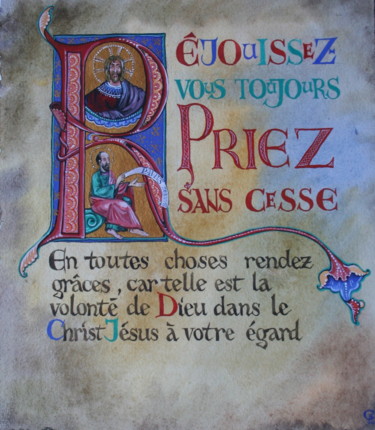 RÉJOUISSEZ-
VOUS TOUJOURS
PRIEZ
SANS CESSE
En toutes choses rendez
grâces, car telle est la
volonté de Dieu dans le
Christ Jésus à votre égard